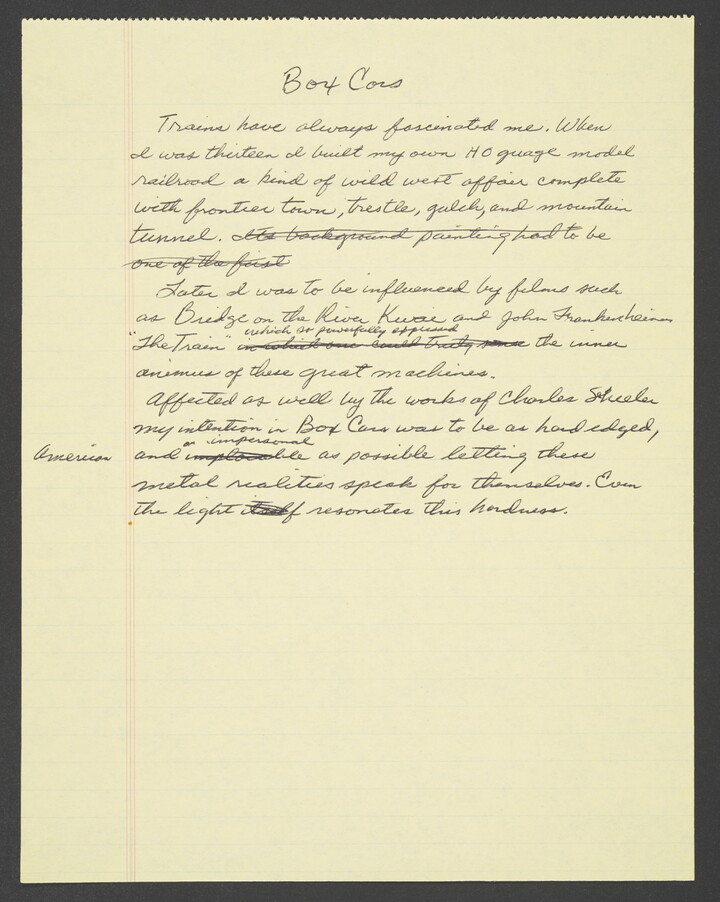 Box Cars
Trains have always fascinated me. When
I was thirteen I built my own HO guage model
railroad a kind of wild west affair complete
with frontier town, trestle, gulch, and mountain
tunnel. Its background painting had to be
one of the first
Later I was to be influenced by films such
as Bridge on the River Kwaie and John Frankenheimers
which so powerfully expressed
"The Train" in which one could truly sense the inner
animus of these great machines.
Affected as well by the works of Charles Sheeler
my intention in Box Cars was to be as hard edged,
as impersonal
American and as possible letting these
metal realities speak for themselves. Even
the light itself resonates this hardness.